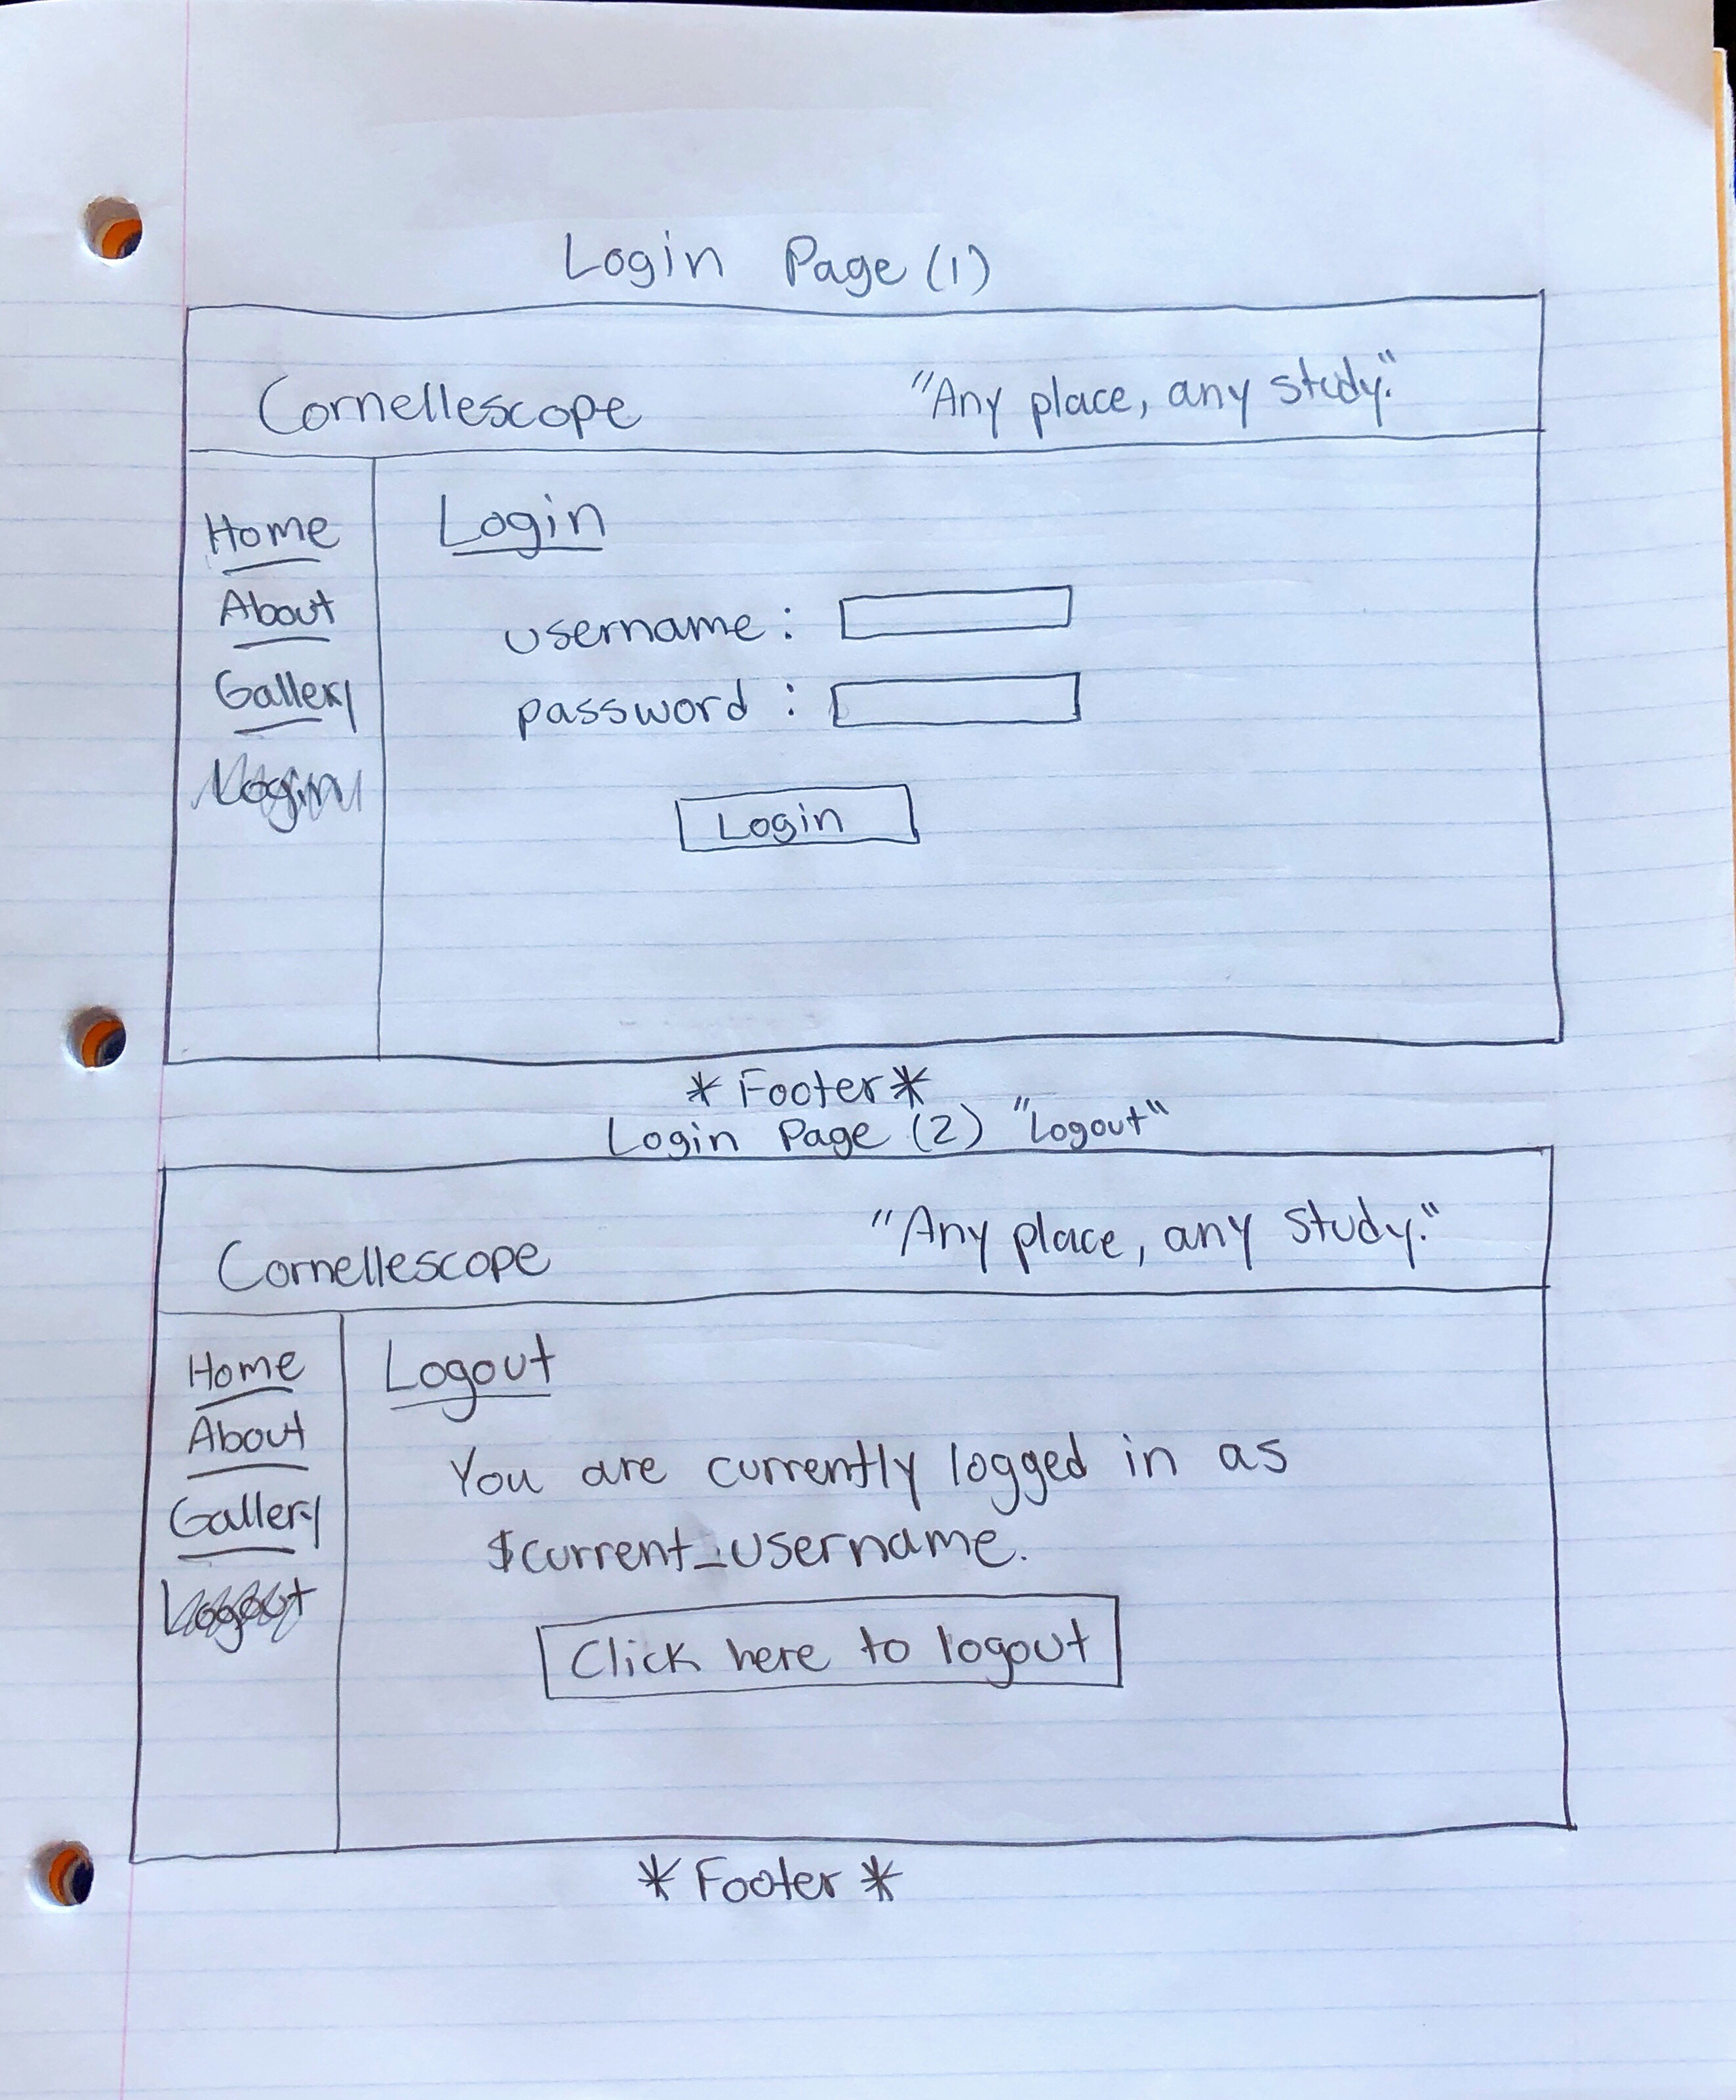 Login Page (1)
Cornellescope "Any place, any study."
Home
About
Gallery
Login
Login
username :
password :
Login
* Footer *
Login Page (2) "Logout"
Cornellescope "Any place, any study."
Home
About
Gallery
Logout
Logout
You are currently logged in as
$current_username.
Click here to logout
* Footer *